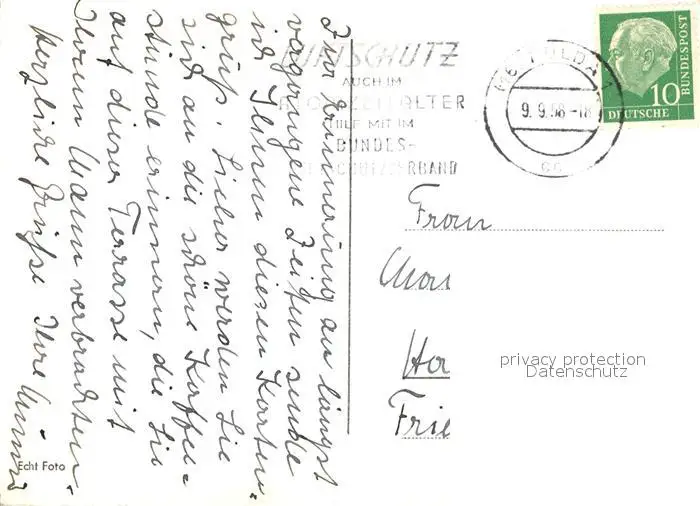 Zur Erinnerung an längst
vergangene Zeiten sende
ich Ihnen diesen Karten-
gruß. Sicher werden Sie
sich an die schöne Kaffee-
stunde erinnern, die Sie
auf dieser Terrasse mit
Ihrem Mann verbrachten.
Herzliche Grüße Ihre
Echt Foto
LUFTSCHUTZ
AUCH IM
ATOMZEITALTER
HILF MIT IM
BUNDES-
LUFTSCHUTZVERBAND
FULDA 1
9.9.58-18
DEUTSCHE
BUNDESPOST
10
Frau
Mar
Ha
Frie
privacy protection
Datenschutz